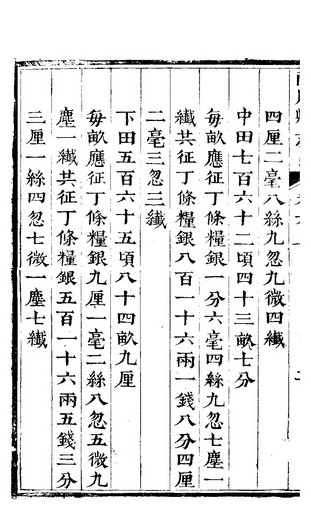 四厘二毫八絲九忽九微四纖
中田七百六十二頃四十三畝七分
每畝應征丁條糧銀一分六毫四絲九忽七塵一
纖共征丁條糧銀八百一十六兩一錢八分四厘
二毫三忽三纖
下田五百六十五頃八十四畝九厘
每畝應征丁條糧銀九厘一毫二絲八忽五微九
塵一纖共征丁條糧銀五百一十六兩五錢三分
三厘一絲四忽七微一塵七纖